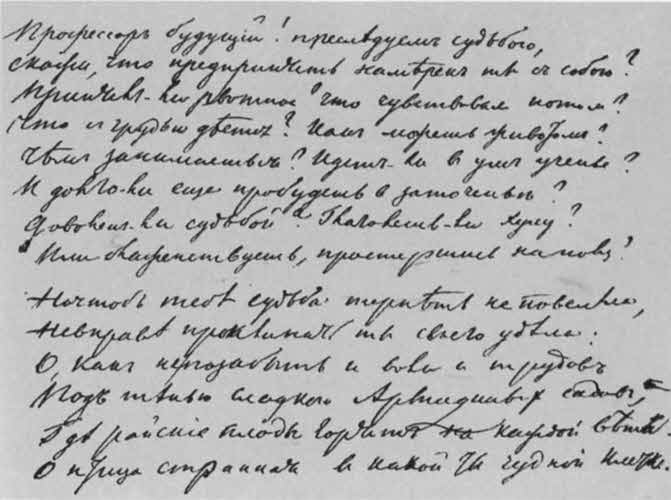 Профессоръ будущiй! преслѣдуемъ судьбою,
Скажи, что предпринять намѣренъ ты съ собою?
Принялъ-ли рвотное что чувствовалъ потомъ?
Что съ грудью дѣется? Какъ можешь животомъ?
Чѣмъ занимаешься? Идетъ-ли в умъ ученье?
И долго-ли еще пробудешь в заточеньѣ?
Доволенъ-ли судьбой? ли хулу?
Или блаженствуешь, простершись на полу?
Но чтобъ тебѣ судьба терпѣть не повелѣла,
Не вправѣ проклинать ты своего удѣла.
О, какъ не позабыть и и трудовъ
Подъ тѣнью сладкою Армидиныхъ садовъ,
Гдѣ райскiе плоды горятъ на каждой вѣткѣ
О птица странная в какой ты чудной клѣткѣ.